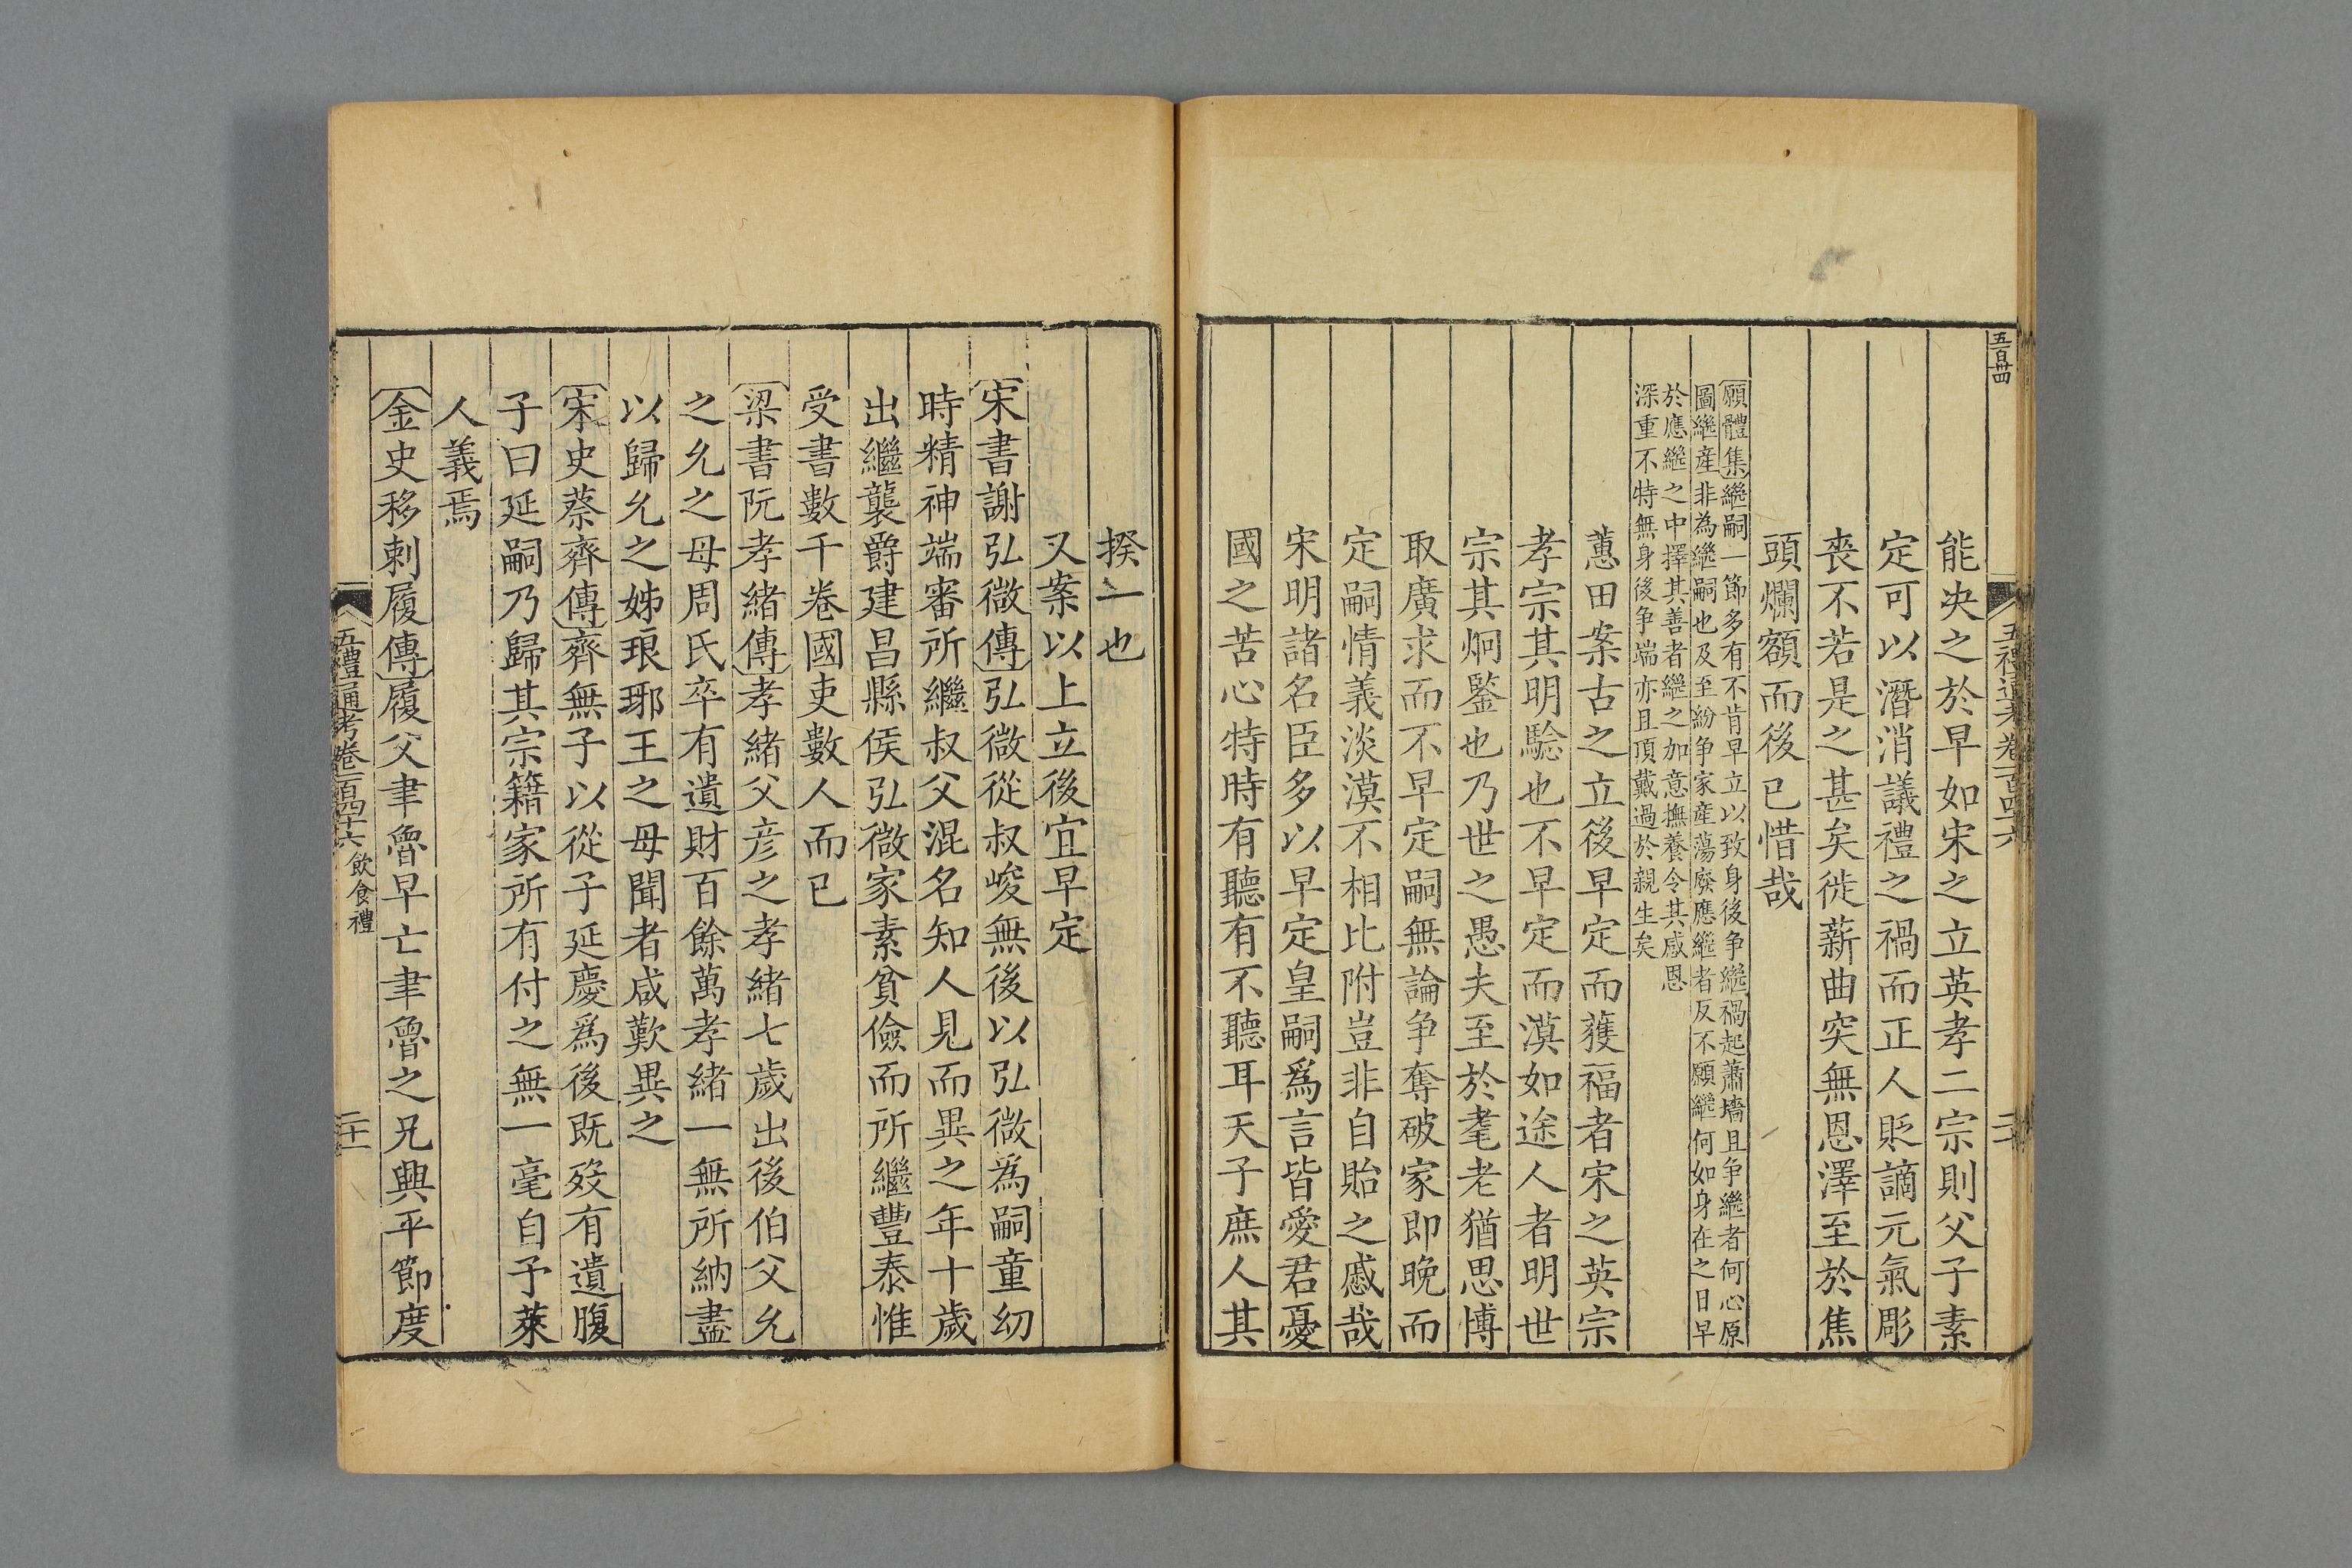 五百卌四
五禮通考卷一百四十六
二十
能決之於早如宋之立英孝二宗則父子素
定可以潛消議禮之禍而正人貶謫元氣彫
喪不若是之甚矣徙薪曲突無恩澤至於焦
頭爛額而後已惜哉
願體集繼嗣一節多有不肯早立以致身後爭繼禍起蕭墻且爭繼者何心原
圖繼産非為繼嗣也及至紛爭家産蕩廢應繼者反不願繼何如身在之日早
於應繼之中擇其善者繼之加意撫養令其感恩
深重不特無身後爭端亦且頂戴過於親生矣
蕙田案古之立後早定而獲福者宋之英宗
孝宗其明驗也不早定而漠如途人者明世
宗其炯鑒也乃世之愚夫至於耄老猶思博
取廣求而不早定嗣無論爭奪破家即晚而
定嗣情義淡漠不相比附豈非自貽之慼哉
宋明諸名臣多以早定皇嗣爲言皆愛君憂
國之苦心特時有聽有不聽耳天子庶人其
揆一也
又案以上立後宜早定
宋書謝弘微傳弘微從叔峻無後以弘微爲嗣童幼
時精神端審所繼叔父混名知人見而異之年十歲
出繼襲爵建昌縣侯弘微家素貧儉而所繼豐泰惟
受書數千卷國吏數人而已
梁書阮孝緒傳孝緒父彦之孝緒七歲出後伯父允
之允之母周氏卒有遺財百餘萬孝緒一無所納盡
以歸允之姊琅邪王之母聞者咸歎異之
宋史蔡齊傳齊無子以從子延慶爲後既歿有遺腹
子曰延嗣乃歸其宗籍家所有付之無一毫自予萊
人義焉
金史移剌履傳履父聿魯早亡聿魯之兄興平節度
五禮通考卷一百四十六 飲食禮
二十一